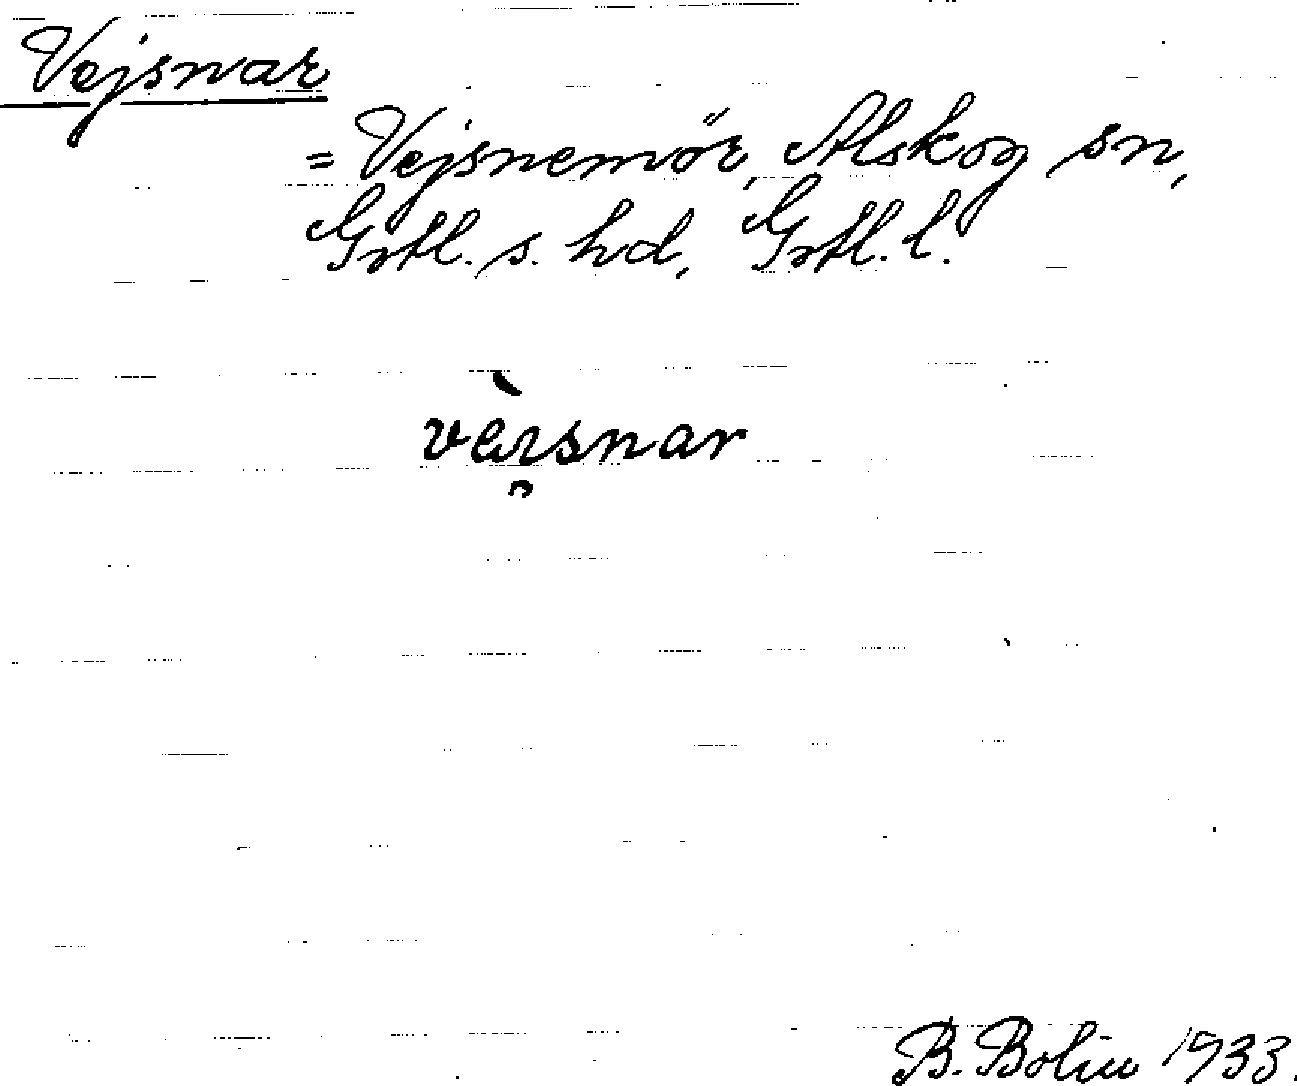 Vejsnar
= Vejsnemör, Alskog sn,
Gotl. s. hd, Gotl. l.
vàɪ̯snar
B. Bolin 1933.